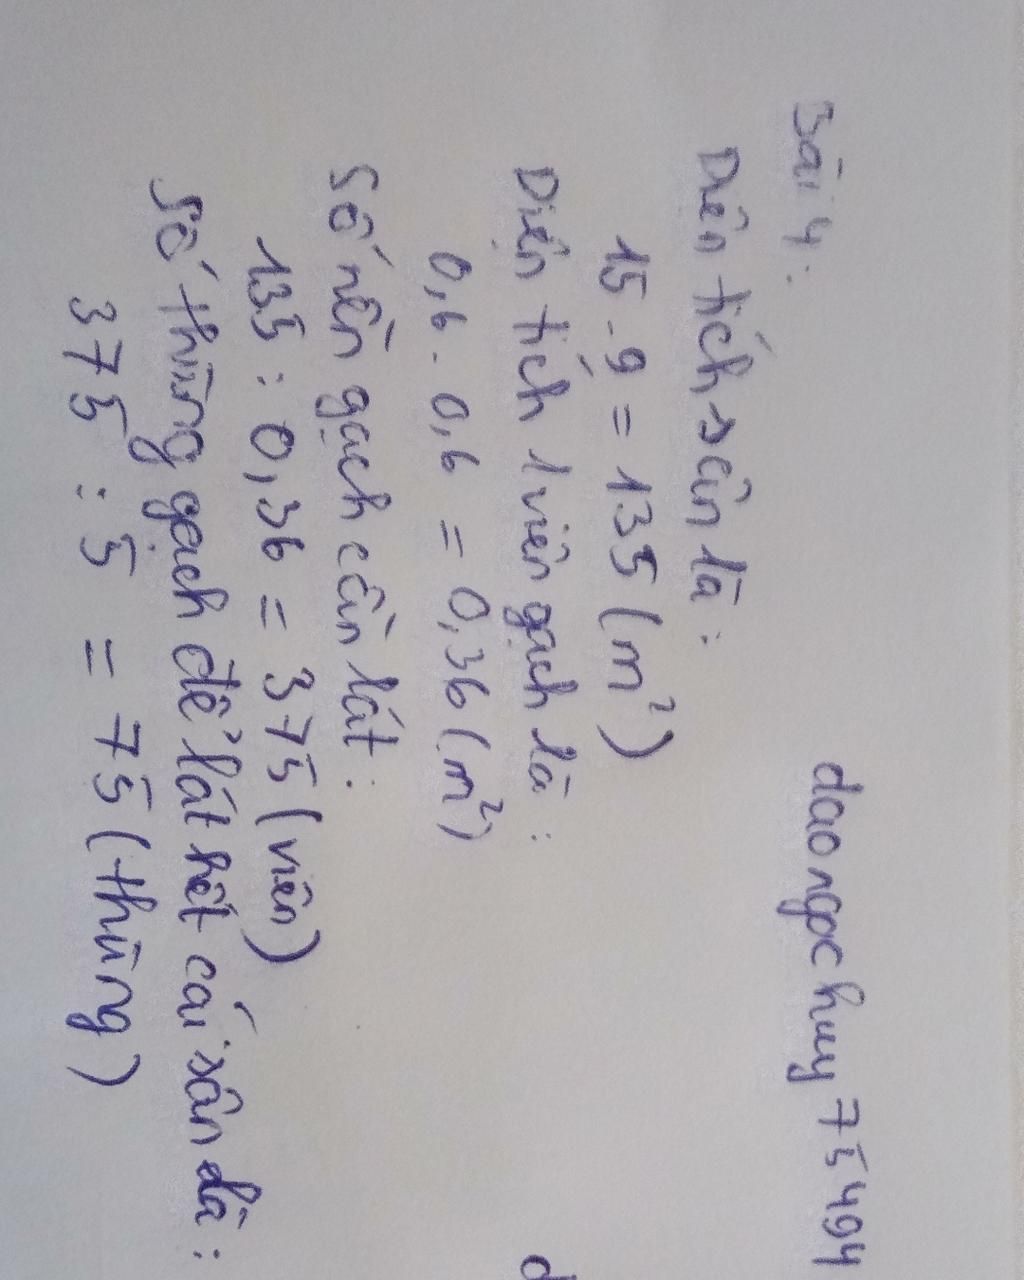 Bài 4:
daongochuy75494
Diện tích sân là:
15.9 = 135 (m²)
Diện tích 1 viên gạch là:
0,6. 0,6 = 0,36 (m²)
Số nền gạch cần lát:
135 : 0,36 = 375 (viên)
Số thùng gạch để lát hết cái sân là:
375 : 5 = 75 (thùng)